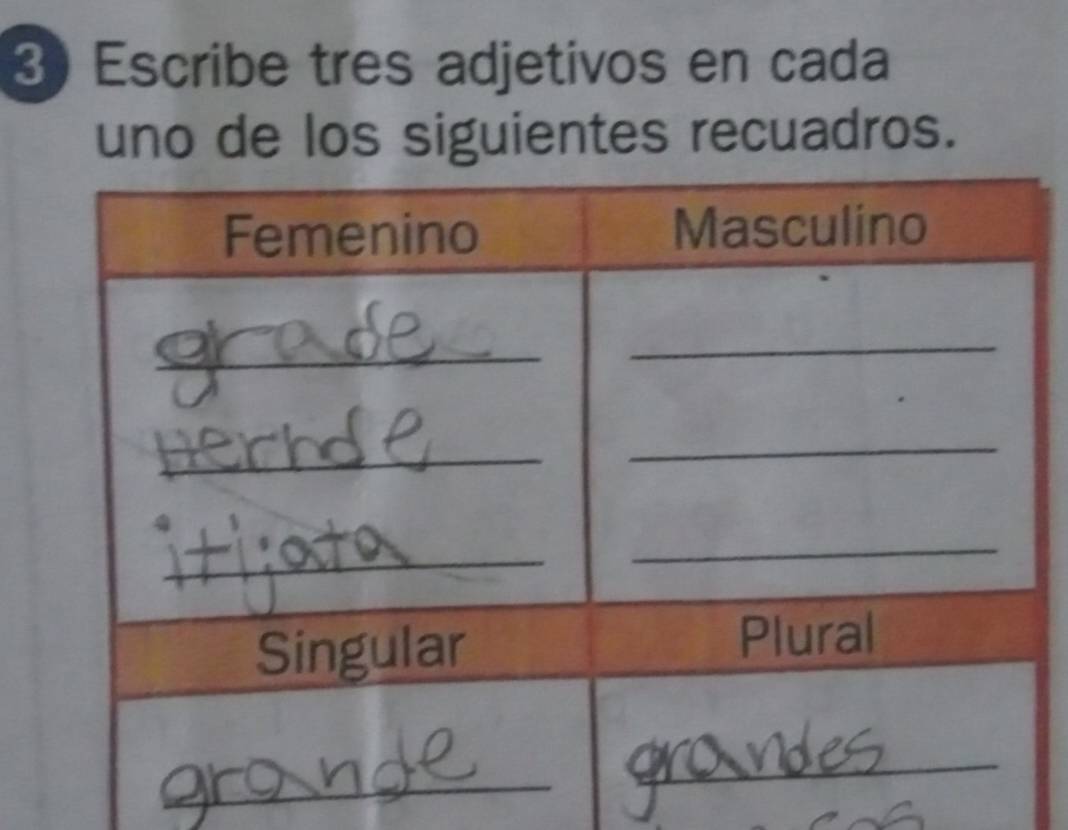 3 Escribe tres adjetivos en cada
uno de los siguientes recuadros.
Femenino Masculino
grade
itijata
Singular Plural
grande grandes